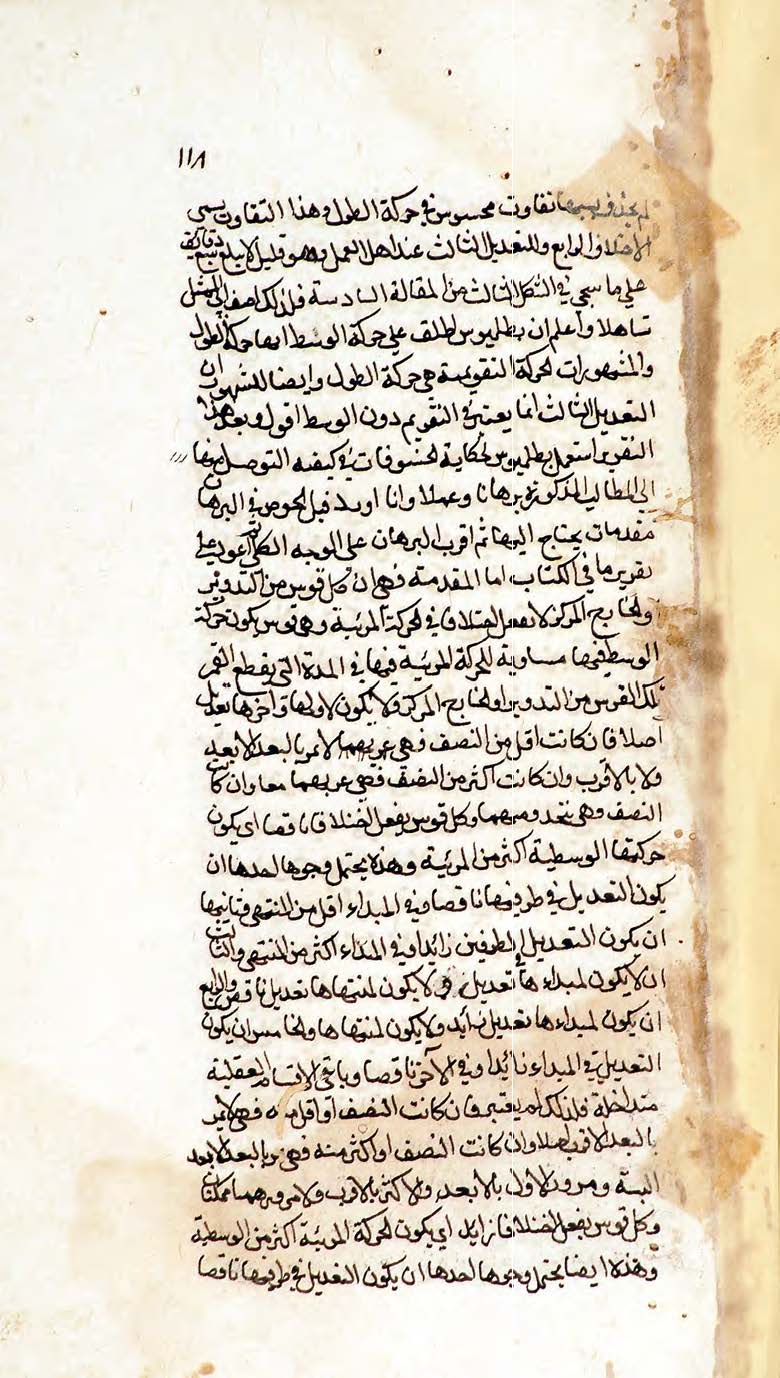 ١١٨
تفاوت محسوس في حركة الطول وهذا التفاوت يسمى
الاختلاف الرابع وللتعديل الثالث عند اهل العمل وهو قليل لا يبلغ سبع دقايق
على ما سيجي في الشكل الثالث من المقالة السادسة فلذلك اضف الى الممثل
تساهلا واعلم ان بطلميوس اطلق على حركة الوسط ايضا حركة الطول
والمشهور ان الحركة التقويمية هي حركة الطول وايضا المشهور ان
التعديل الثالث انما يعتبر في التقويم دون الوسط اقول وبعد هذا
التقرير استعمل بطلميوس لحكاية الخسوفات في كيفية التوصل منها
الى المطالب المذكورة برهانا وعملا وانا اورد قبل الخوض في البرهان
مقدمات يحتاج اليها ثم اقرب البرهان على الوجه الكلي ثم اعود على
تقرير ما في الكتاب اما المقدمة فهي ان كل قوس من التدوير
او الخارج المركز لا يفعل اختلافا في الحركة المرئية وهي قوس يكون حركة
الوسط فيها مساوية للحركة المرئية فيها في المدة التي يقطع القمر
تلك القوس من التدوير او الخارج المركز ولا يكون لاولها وآخرها تعديل
اصلا فان كانت اقل من النصف فهي لا تمر بالبعد الابعد
ولا بالاقرب وان كانت اكثر من النصف فهي تمر بهما معا وان كانت
النصف وهي تتحد ومنهما وكل قوس يفعل اختلافا ناقصا اي يكون
حركتها الوسطية اكثر من المرئية وهذه يحتمل وجوها احدها ان
يكون التعديل في طرفيها ناقصا وفي المبداء اقل من المنتهى وثانيها
ان يكون التعديل في الطرفين زائدا وفي المبداء اكثر من المنتهى والثالث
ان لا يكون لمبداءها تعديل ولا يكون لمنتهاها تعديل ناقص والرابع
ان يكون لمبداءها تعديل زايد ولا يكون لمنتهاها والخامس ان يكون
التعديل في المبداء زائدا وفي الآخر ناقصا وباقي الاقسام العقلية
متداخلة فلذلك لم يعتبر فان كانت النصف او اقل منه فهي لا تمر
بالبعد الاقرب اصلا وان كانت النصف او اكثر منه فهي تمر بالبعد الابعد
البتة ومرور الاول بالابعد والاكثر بالاقرب ولا مرورهما ممكنان
وكل قوس يفعل اختلافا زايدا اي يكون الحركة المرئية اكثر من الوسطية
وهذه ايضا يحتمل وجوها احدها ان يكون التعديل في طرفيها ناقصا